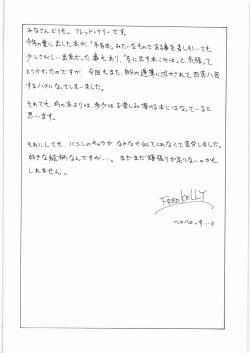 みなさんどうも。フレッド・ケリーです。
今年の夏に出した本が、"予告本"みたいなもので ある事を差し引いても
少しさびしい出来だった事もあり、「冬に出す本こそは」と 気張って
とりかかったのですが 今回もまた、自分の遅筆に泣かされて 四苦八苦
するハメになってしまいました。
それでも、前の本よりは、多少は お楽しみ頂ける本にはなっていると
思います。
それにしても、
なかなか似てくれなくて苦労しました。
好きな絵柄なんですが…。 まだまだ 頑張りが足りないのかも
しれません。
FRED KELLY
ペロペロっす…